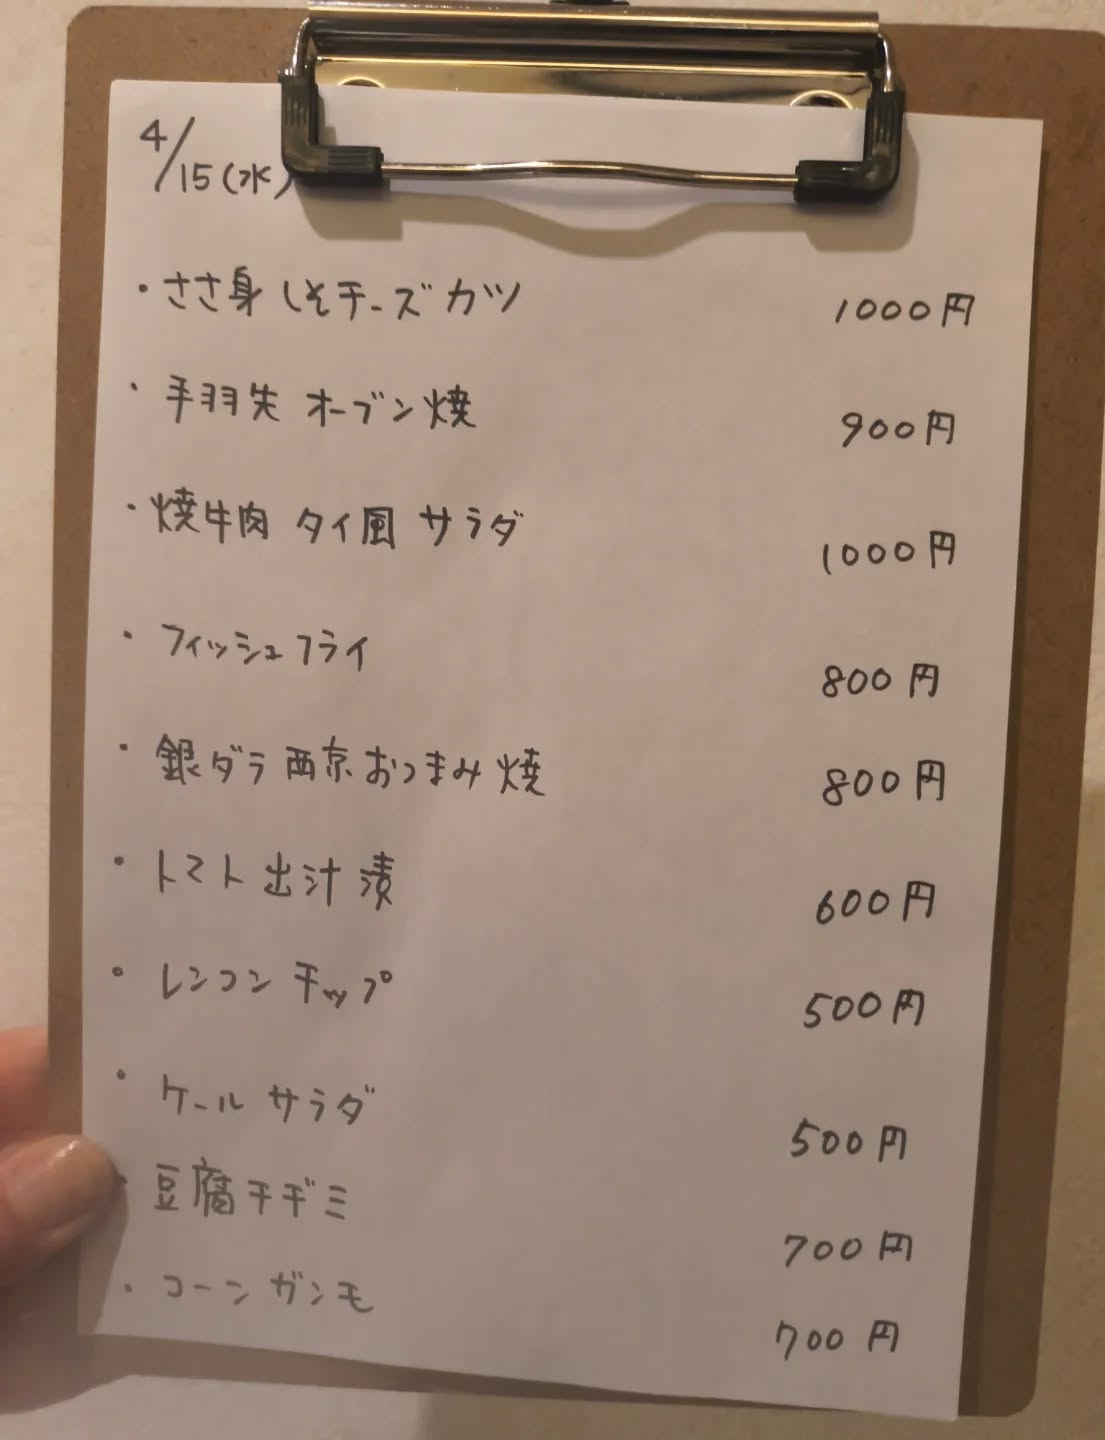 4/15(水)
・ささ身 しそチーズ カツ 1000円
・手羽先 オーブン焼 900円
・焼牛肉 タイ風 サラダ 1000円
・フィッシュフライ 800円
・銀ダラ 西京おつまみ焼 800円
・トマト出汁漬 600円
・レンコン チップ 500円
・ケール サラダ 500円
・豆腐チヂミ 700円
・コーン ガンモ 700円